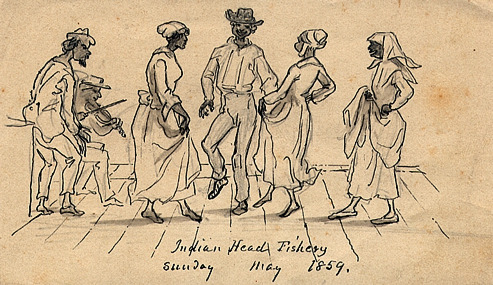 Indian Head Fishery
Sunday May 1859.